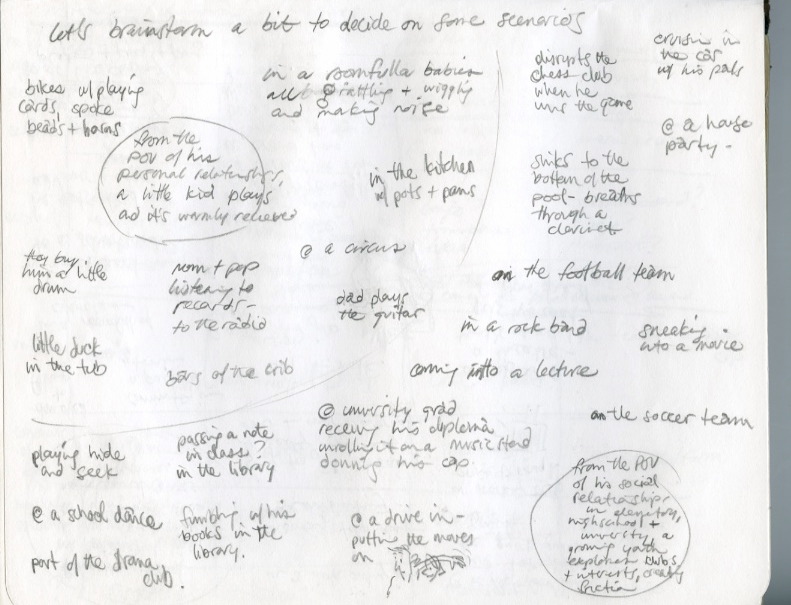 let's brainstorm a bit to decide on some scenarios
bikes w/ playing
cards, spoke
beads + horns
in a roomfulla babies
all rattling + wiggling
and making noise
disrupts the
chess club
when he
wins the game
cruisin in
the car
w/ his pals
@ a house
party -
from the
POV of his
personal relationships,
a little kid plays
and it's warmly recieved
in the kitchen
w/ pots + pans
sinks to the
bottom of the
pool - breaths
through a
clarinet
they buy
him a little
drum
mom + pop
listening to
records -
to the radio
@ a circus
dad plays
the guitar
on the football team
in a rock band
sneaking
into a movie
little duck
in the tub
bars of the crib
coming into a lecture
on the soccer team
@ university grad
receiving his diploma
unrolling it on a music stand
donning his cap
playing hide
and seek
passing a note
in class?
in the library
@ a school dance
fumbling w/ his
books in the
library.
@ a drive in -
puttin the moves
on
part of the drama
club.
from the POV
of his social
relationships
in elementry,
highschool +
university a
growing youth
explores clubs
+ interests, creating
friction